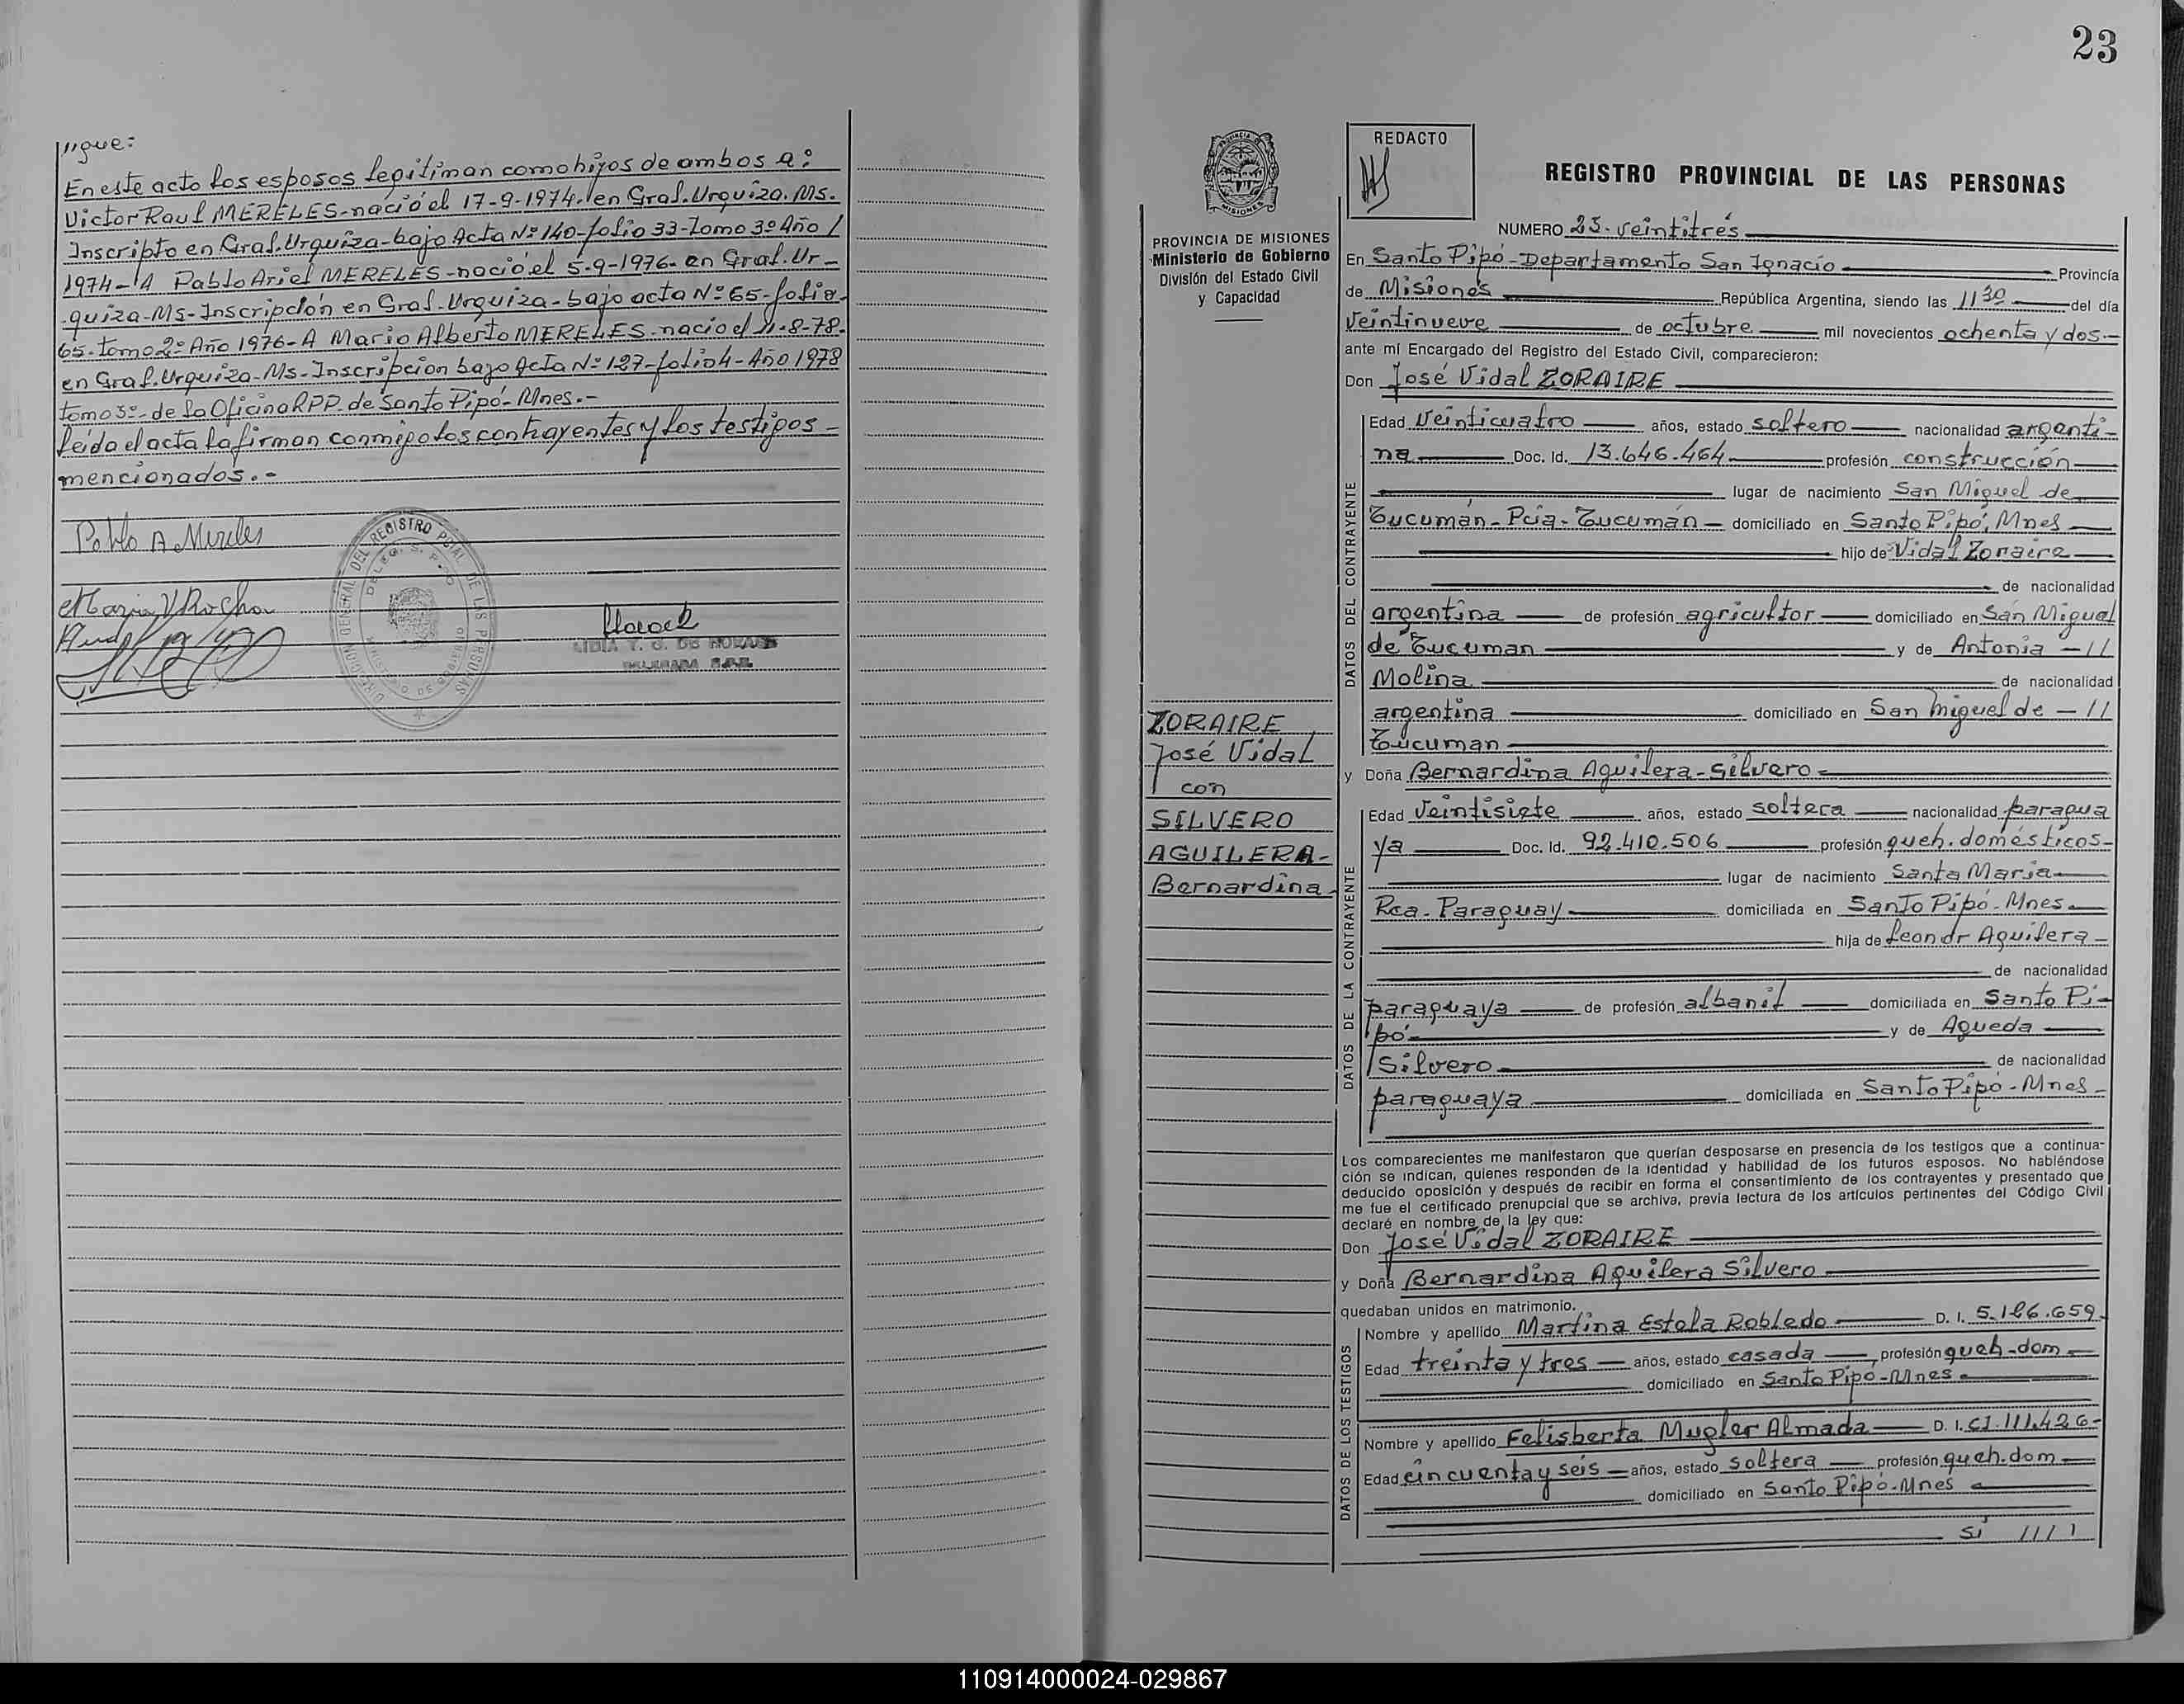 //gue:
En este acto los esposos legitiman como hijos de ambos a:
Victor Raul MERELES-nació el 17-9-1974-en Gral. Urquiza. Ms.
Inscripto en Gral. Urquiza-bajo Acta Nº 140-folio 33-Tomo 3º Año /
1974-A Pablo Ariel MERELES-nació el 5-9-1976-en Gral. Ur-
quiza-Ms-Inscripción en Gral. Urquiza-bajo acta Nº 65-folio
65-tomo 2º Año 1976-A Mario Alberto MERELES-nacio el 11-8-78-
en Gral. Urquiza-Ms-Inscripcion bajo Acta Nº 127-folio 4-Año 1978
tomo 3º-de la Oficina RPP. de Santo Pipó-Mnes.-
leida el acta la firman conmigo los contrayentes y los testigos-
mencionados.-
Pablo A Mereles
Maria V Rocha
DIRECCION GENERAL DEL REGISTRO PCIAL DE LAS PERSONAS
23
REDACTO
REGISTRO PROVINCIAL DE LAS PERSONAS
PROVINCIA DE MISIONES
Ministerio de Gobierno
División del Estado Civil
y Capacidad
NUMERO 23-veintitrés
En Santo Pipó-Departamento San Ignacio Provincia
de Misiones República Argentina, siendo las 11 30 del día
veintinueve de octubre mil novecientos ochenta y dos.-
ante mí Encargado del Registro del Estado Civil, comparecieron:
Don José Vidal ZORAIRE
DATOS DEL CONTRAYENTE
Edad veinticuatro años, estado soltero nacionalidad argenti-
na Doc. Id. 13.646.464 profesión construcción
lugar de nacimiento San Miguel de
Tucumán-Pcia-Tucumán domiciliado en Santo Pipó, Mnes
hijo de Vidal Zoraire
de nacionalidad
argentina de profesión agricultor domiciliado en San Miguel
de Tucuman y de Antonia -//
Molina de nacionalidad
argentina domiciliado en San Miguel de -//
Tucuman
ZORAIRE
José Vidal
con
SILVERO
AGUILERA-
Bernardina
y Doña Bernardina Aguilera-Silvero-
DATOS DE LA CONTRAYENTE
Edad veintisiete años, estado soltera nacionalidad paragua
ya Doc. Id. 92.410.506 profesión queh. domésticos-
lugar de nacimiento Santa Maria
Rca. Paraguay domiciliada en Santo Pipó-Mnes
hija de Leondr Aguilera-
de nacionalidad
paraguaya de profesión albanil domiciliada en Santo Pi-
pó y de Agueda
Silvero de nacionalidad
paraguaya domiciliada en Santo Pipó-Mnes-
Los comparecientes me manifestaron que querían desposarse en presencia de los testigos que a continua-
ción se indican, quienes responden de la identidad y habilidad de los futuros esposos. No habiéndose
deducido oposición y después de recibir en forma el consentimiento de los contrayentes y presentado que
me fue el certificado prenupcial que se archiva, previa lectura de los artículos pertinentes del Código Civil
declaré en nombre de la ley que:
Don José Vidal ZORAIRE
y Doña Bernardina Aguilera Silvero
quedaban unidos en matrimonio.
DATOS DE LOS TESTIGOS
Nombre y apellido Martina Estela Robledo D. I. 5.186.659
Edad treinta y tres años, estado casada profesión queh-dom
domiciliado en Santo Pipó-Mnes
Nombre y apellido Felisberta Mugler Almada D. I. CI.111.426-
Edad cincuenta y seis años, estado soltera profesión queh. dom
domiciliado en Santo Pipó-Mnes
Si ////
110914000024-029867